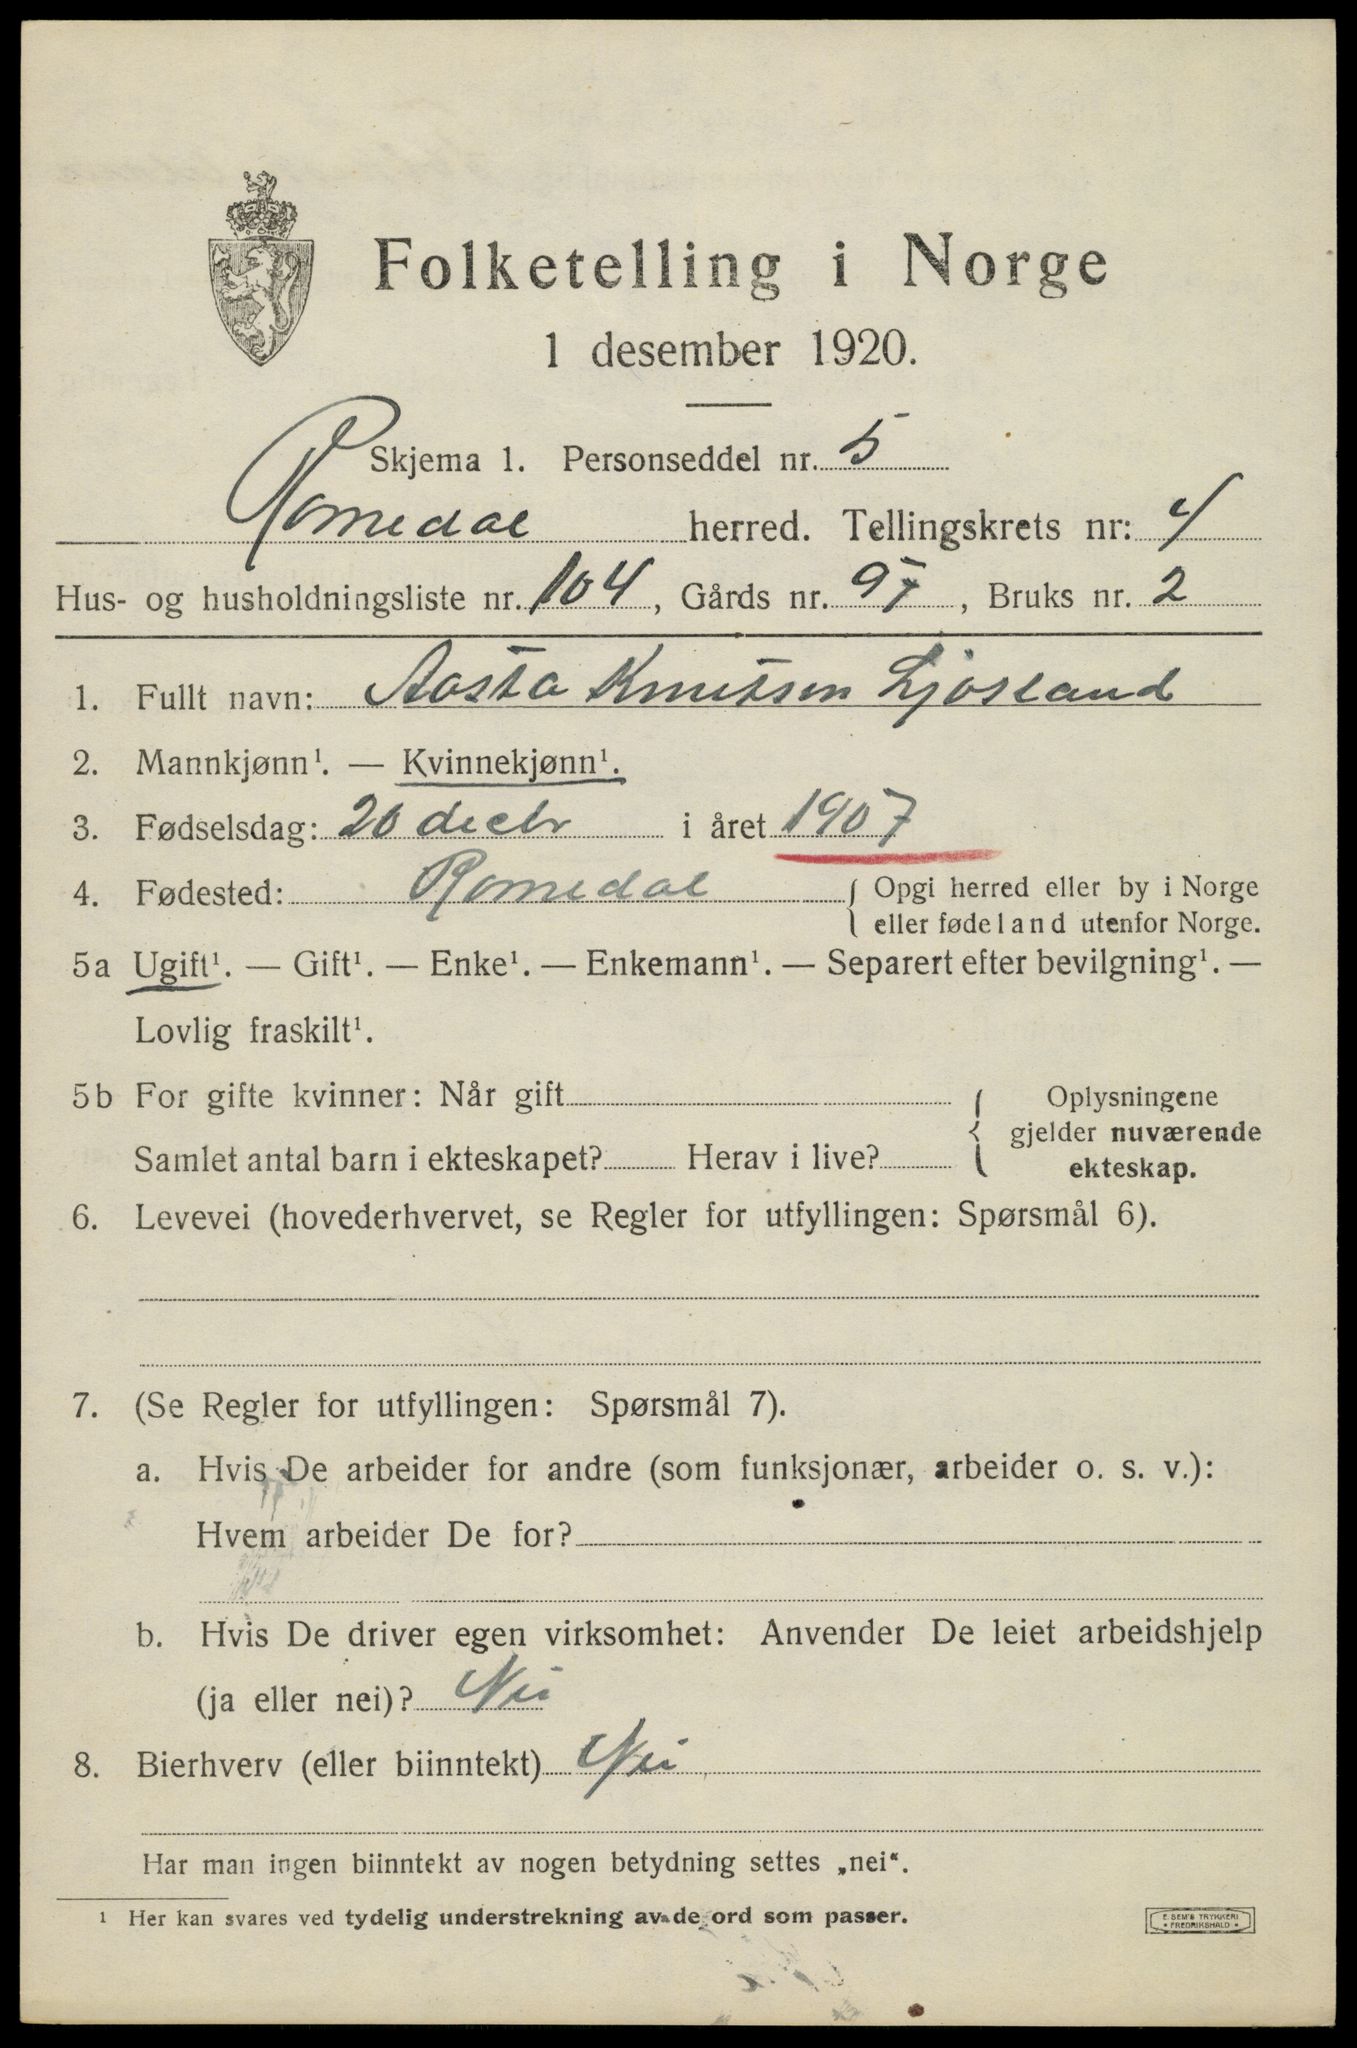 Folketelling i Norge
1 desember 1920.
Skjema 1. Personseddel nr. 5
Romedal herred. Tellingskrets nr: 4
Hus- og husholdningsliste nr. 104, Gårds nr. 97, Bruks nr. 2
1. Fullt navn: Aasta Knutsen Ljøsland
2. Mannkjønn¹. — Kvinnekjønn¹.
3. Fødselsdag: 20 decbr i året 1907
4. Fødested: Romedal { Opgi herred eller by i Norge
eller fødeland utenfor Norge.
5a Ugift¹. — Gift¹. — Enke¹. — Enkemann¹. — Separert efter bevilgning¹. —
Lovlig fraskilt¹.
5b For gifte kvinner: Når gift
Samlet antal barn i ekteskapet? Herav i live?
{ Oplysningene
gjelder nuværende
ekteskap.
6. Levevei (hovederhvervet, se Regler for utfyllingen: Spørsmål 6).
7. (Se Regler for utfyllingen: Spørsmål 7).
a. Hvis De arbeider for andre (som funksjonær, arbeider o. s. v.):
Hvem arbeider De for?
b. Hvis De driver egen virksomhet: Anvender De leiet arbeidshjelp
(ja eller nei)? Nei
8. Bierhverv (eller biinntekt) Nei
Har man ingen biinntekt av nogen betydning settes „nei“.
¹ Her kan svares ved tydelig understrekning av de ord som passer.
E. SEM'S TRYKKERI
• FREDRIKSHALD •